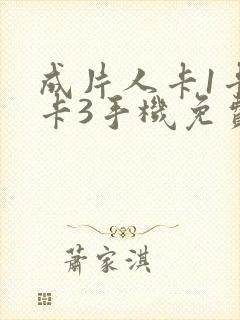 成片人卡1卡
卡3手機免費
蕭家淇